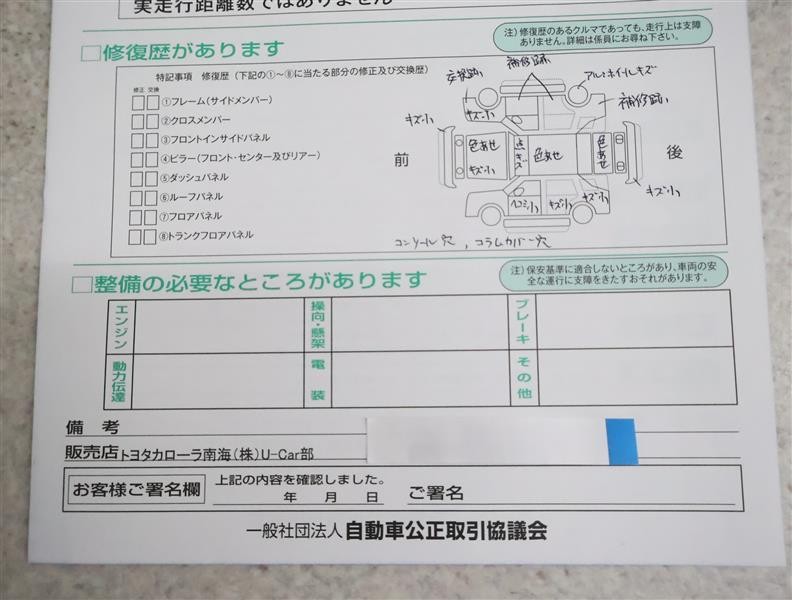 実走行距離数ではありません
□修復歴があります
注）修復歴のあるクルマであっても、走行上は支障
ありません。詳細は係員にお尋ね下さい。
特記事項 修復歴（下記の①～⑧に当たる部分の修正及び交換歴）
修正 交換
①フレーム（サイドメンバー）
②クロスメンバー
③フロントインサイドパネル
④ピラー（フロント・センター及びリアー）
⑤ダッシュパネル
⑥ルーフパネル
⑦フロアパネル
⑧トランクフロアパネル
交換跡
補修跡
アルミホイールキズ
補修跡
キズ小
キズ小
前
色あせ
キズ小
点キズ
色あせ
色あせ
後
キズ小
ヘコミ小
キズ小
キズ小
コンソール穴，コラムカバー穴
□整備の必要なところがあります
注）保安基準に適合しないところがあり、車両の安
全な運行に支障をきたすおそれがあります。
エンジン
操向・懸架
ブレーキ
動力伝達
電装
その他
備考
販売店 トヨタカローラ南海（株）U-Car部
お客様ご署名欄
上記の内容を確認しました。
年 月 日
ご署名
一般社団法人 自動車公正取引協議会